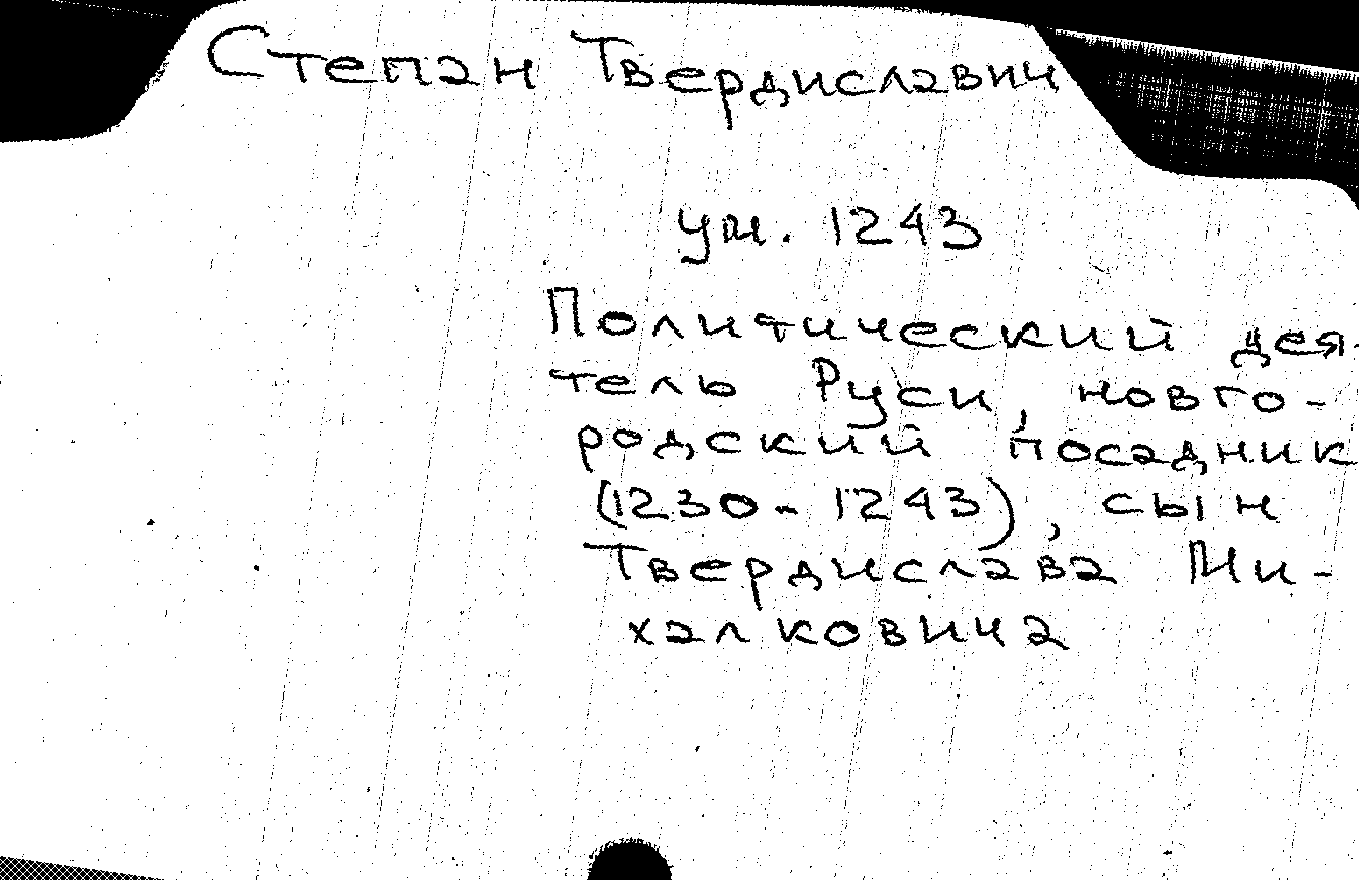 Степан Твердиславич
ум. 1243
Политический дея-
тель Руси, новго-
родский посадник
(1230-1243), сын
Твердислава Ми-
халковича